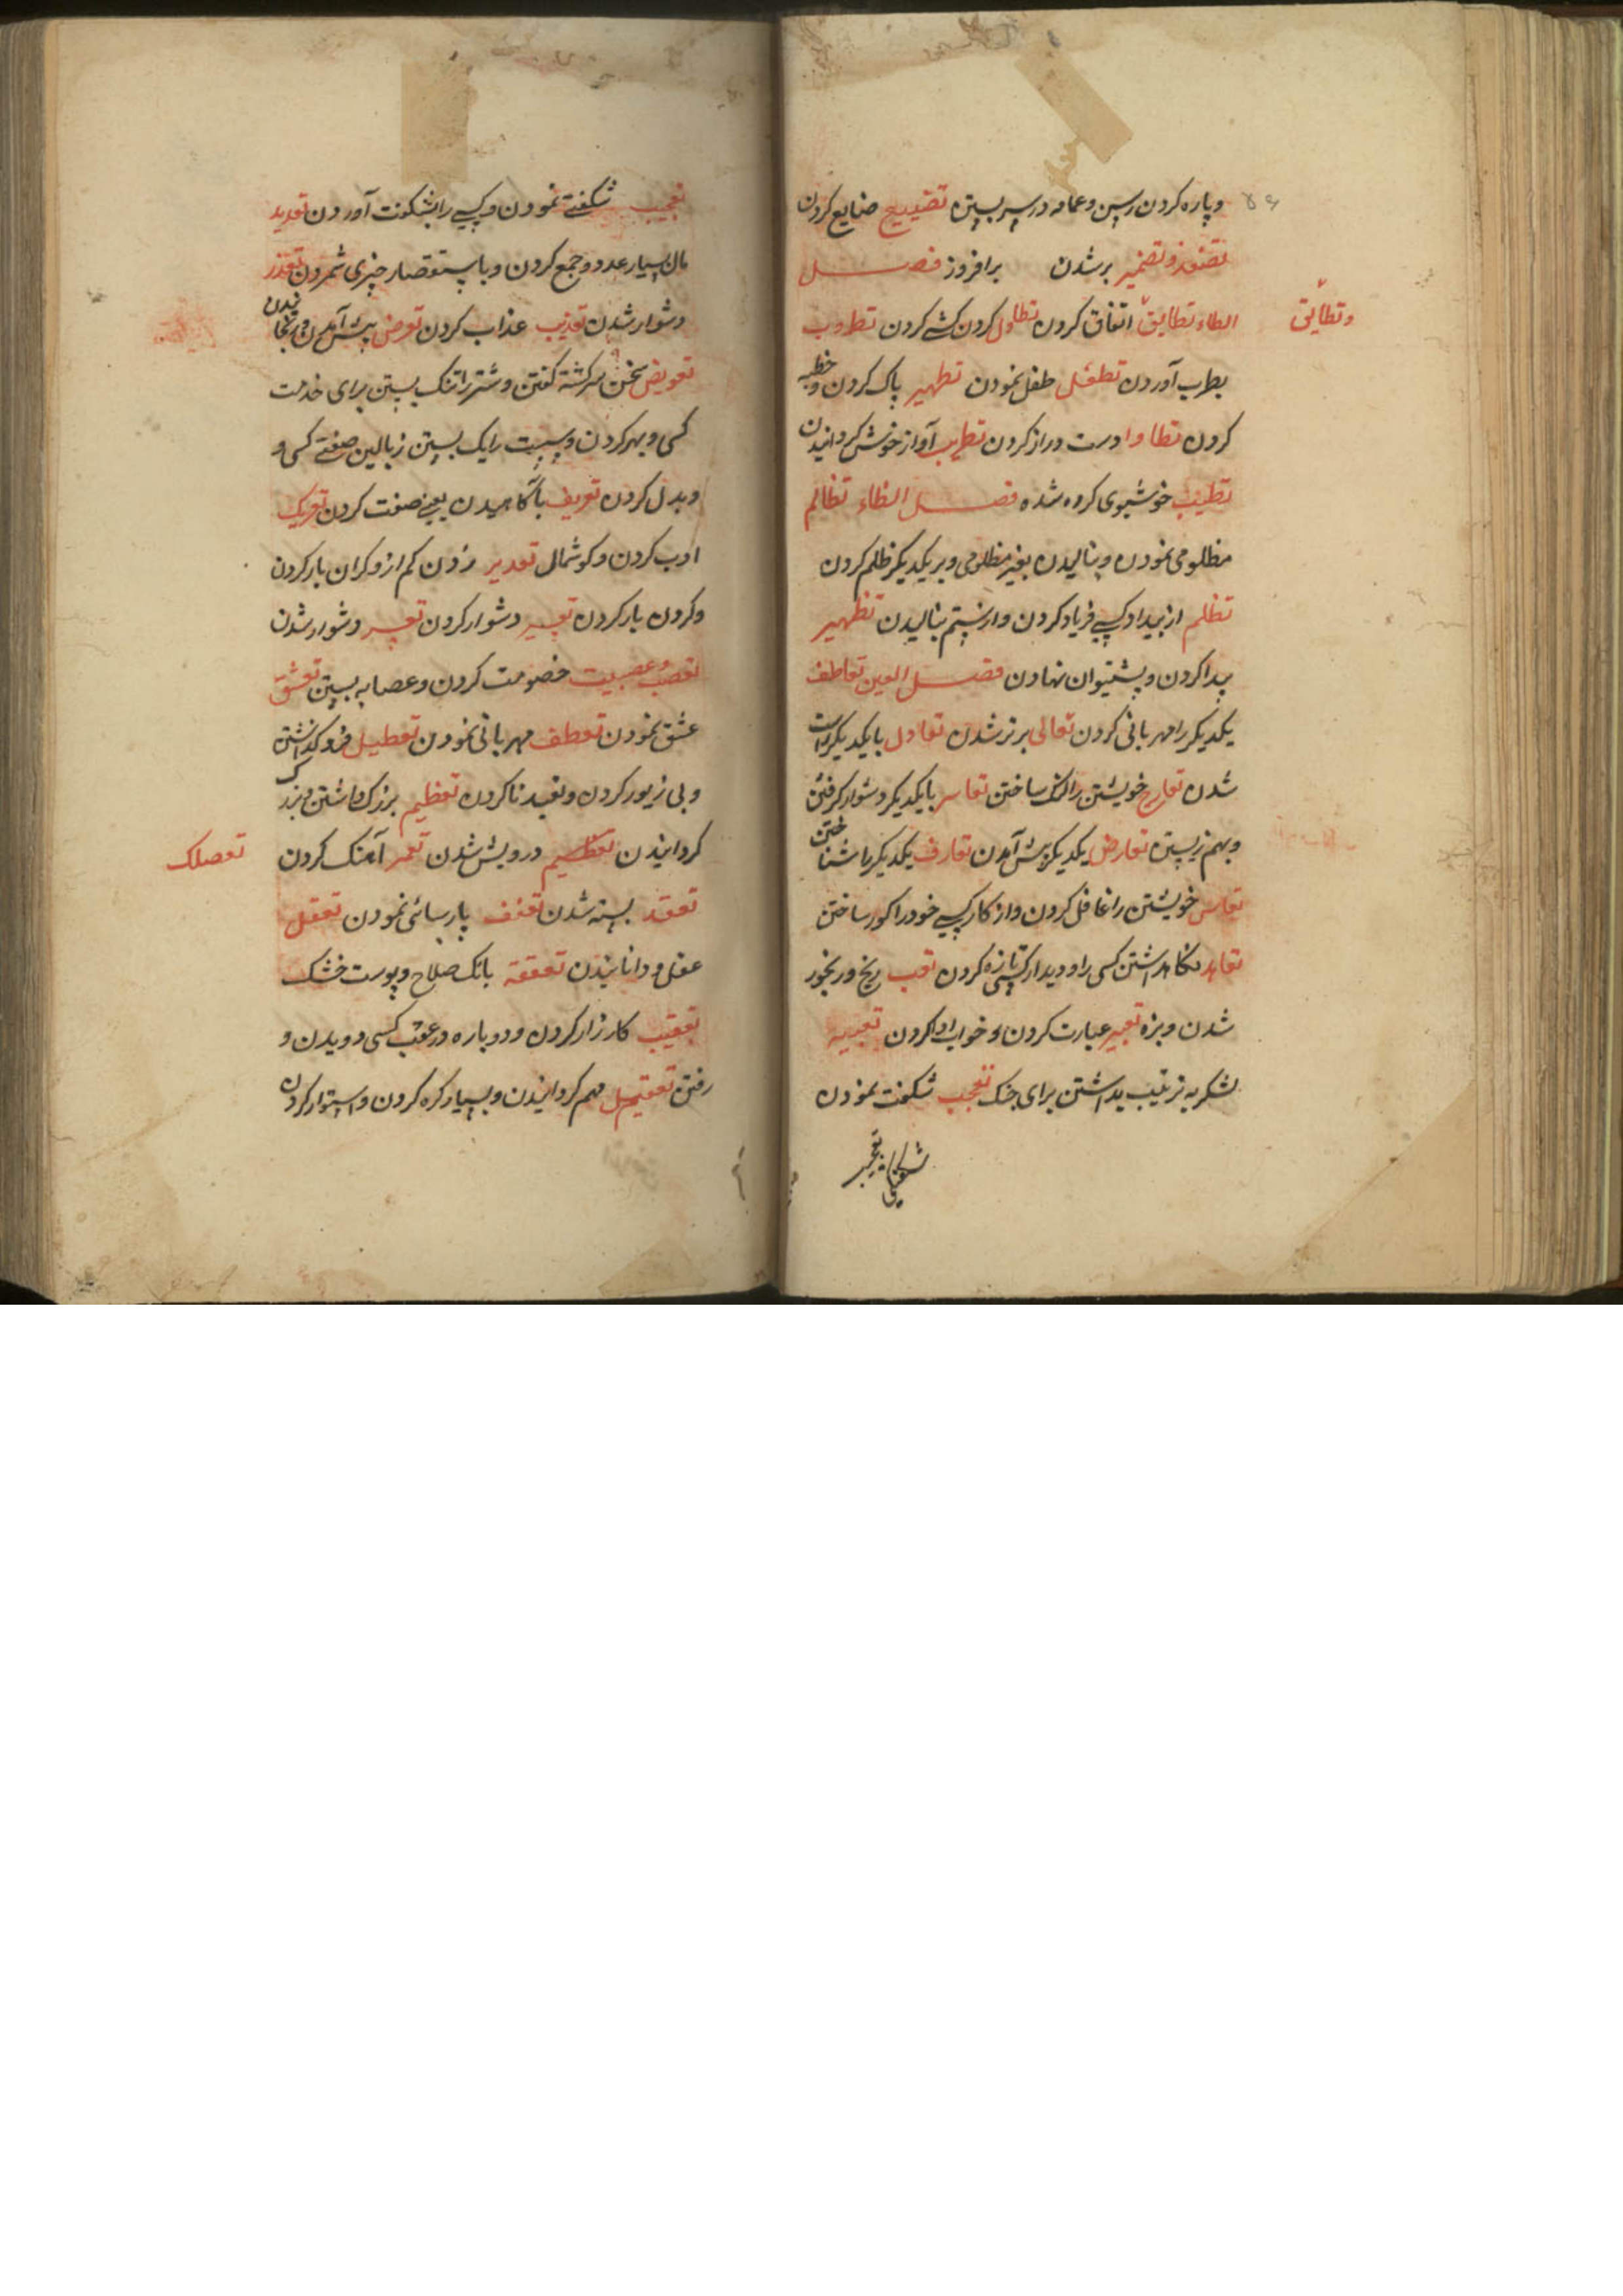 وپاره کردن رسن وعمامه در سر بستن تضییع ضایع کردن
برشدن برافروز فصل
وتطایق
الطاء تطابق اتفاق کردن تطاول کردن کشی کردن تطروب
بطرب آوردن تطفل طفل نمودن تطهیر پاک کردن و خطبه
کردن تطاول دست دراز کردن تطریب آواز خوش کردانیدن
تطیب خوشبوی کرده شده فصل الظاء تظالم
مظلومی نمودن وبنالیدن بغیر مظلومی وبر یکدیکر ظلم کردن
تظلم از بیداد کسی فریاد کردن واز ستم بنالیدن تظهیر
پیدا کردن وپشتیوان نهادن فصل العین تعاطف
یکدیکر را مهربانی کردن تعالی برتر شدن تعادل بایکدیکر راست
شدن تعارج خویشتن را لنک ساختن تعاسر بایکدیکر دشوار کرفتن
وبهم زیستن تعارض یکدیکر پیش آمدن تعارف یکدیکر را شناختن
تعامی خویشتن را غافل کردن واز کار کسی خود را کور ساختن
تعاهد نکاهداشتن کسی را ودیدار کسی تازه کردن تعب رنج ورنجور
شدن وبزه تعبیر عبارت کردن وخواب ادا کردن تعبیه
لشکر به ترتیب بداشتن برای جنک تعجب شکفت نمودن
تعجیب
تعجیب شکفتی نمودن وکسی را بشکفت آوردن تعدید
مال بسیار عدد وجمع کردن وباستقصار چیزی شمردن تعذر
دشوار شدن تعذیب عذاب کردن تعرض پیش آمدن
تعریض سخن سرکشته کفتن وشتر را تنک بستن برای خدمت
کسی و
وبدل کردن تعریف باکاهیدن یعنی صفت کردن تعریک
ادب کردن وکوشمال تعدیر زدن کم از وکران بار کردن
وکردن بار کردن تعسیر دشوار کردن تعسر دشوار شدن
تعصب وعصبیت خصومت کردن وعصابه بستن تعشق
عشق نمودن تعطف مهربانی نمودن تعطیل فروکذاشتن
وبی زیور کردن وتعبد نا کردن تعظیم بزرک داشتن وبزرک
کردانیدن درویش شدن تعمر آهنک کردن
تعصلک
تعقد بسته شدن تعفف پارسائی نمودن تعقل
عقل ودانانیدن تعقعه بانک صلاح وپوست خشک
تعقیب کارزار کردن ودوباره در عقب کسی دویدن و
رفتن مهم کردانیدن وبسیار کره کردن واستوار کردن